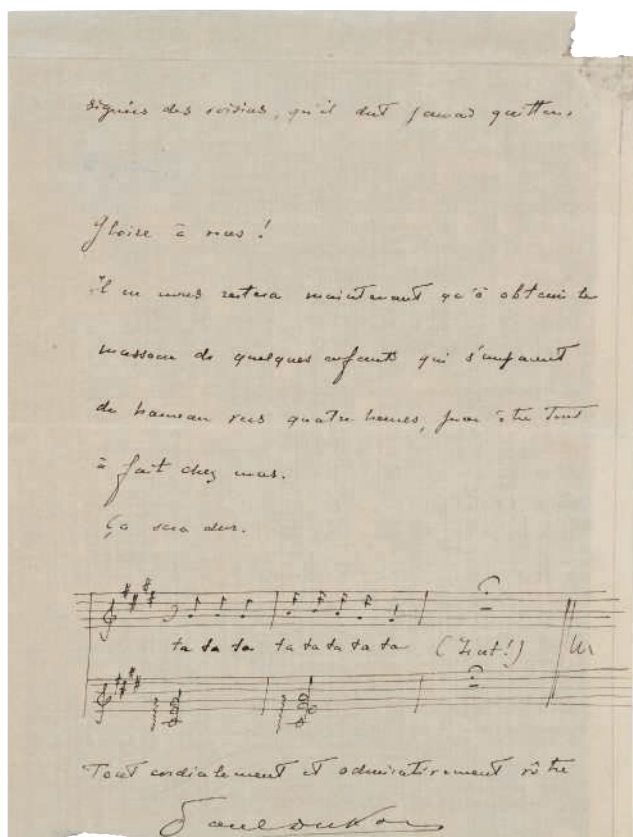 signées des voisins, qu'il dut jamais quitter.
Gloire à nous !
Il ne nous restera maintenant qu'à obtenir le
massacre de quelques enfants qui s'emparent
du hameau vers quatre heures, pour être tout
à fait chez nous.
Ça sera dur.
ta ta ta ta ta ta ta ta (Zut!)
Tout cordialement et admirativement vôtre
Paul Dukas